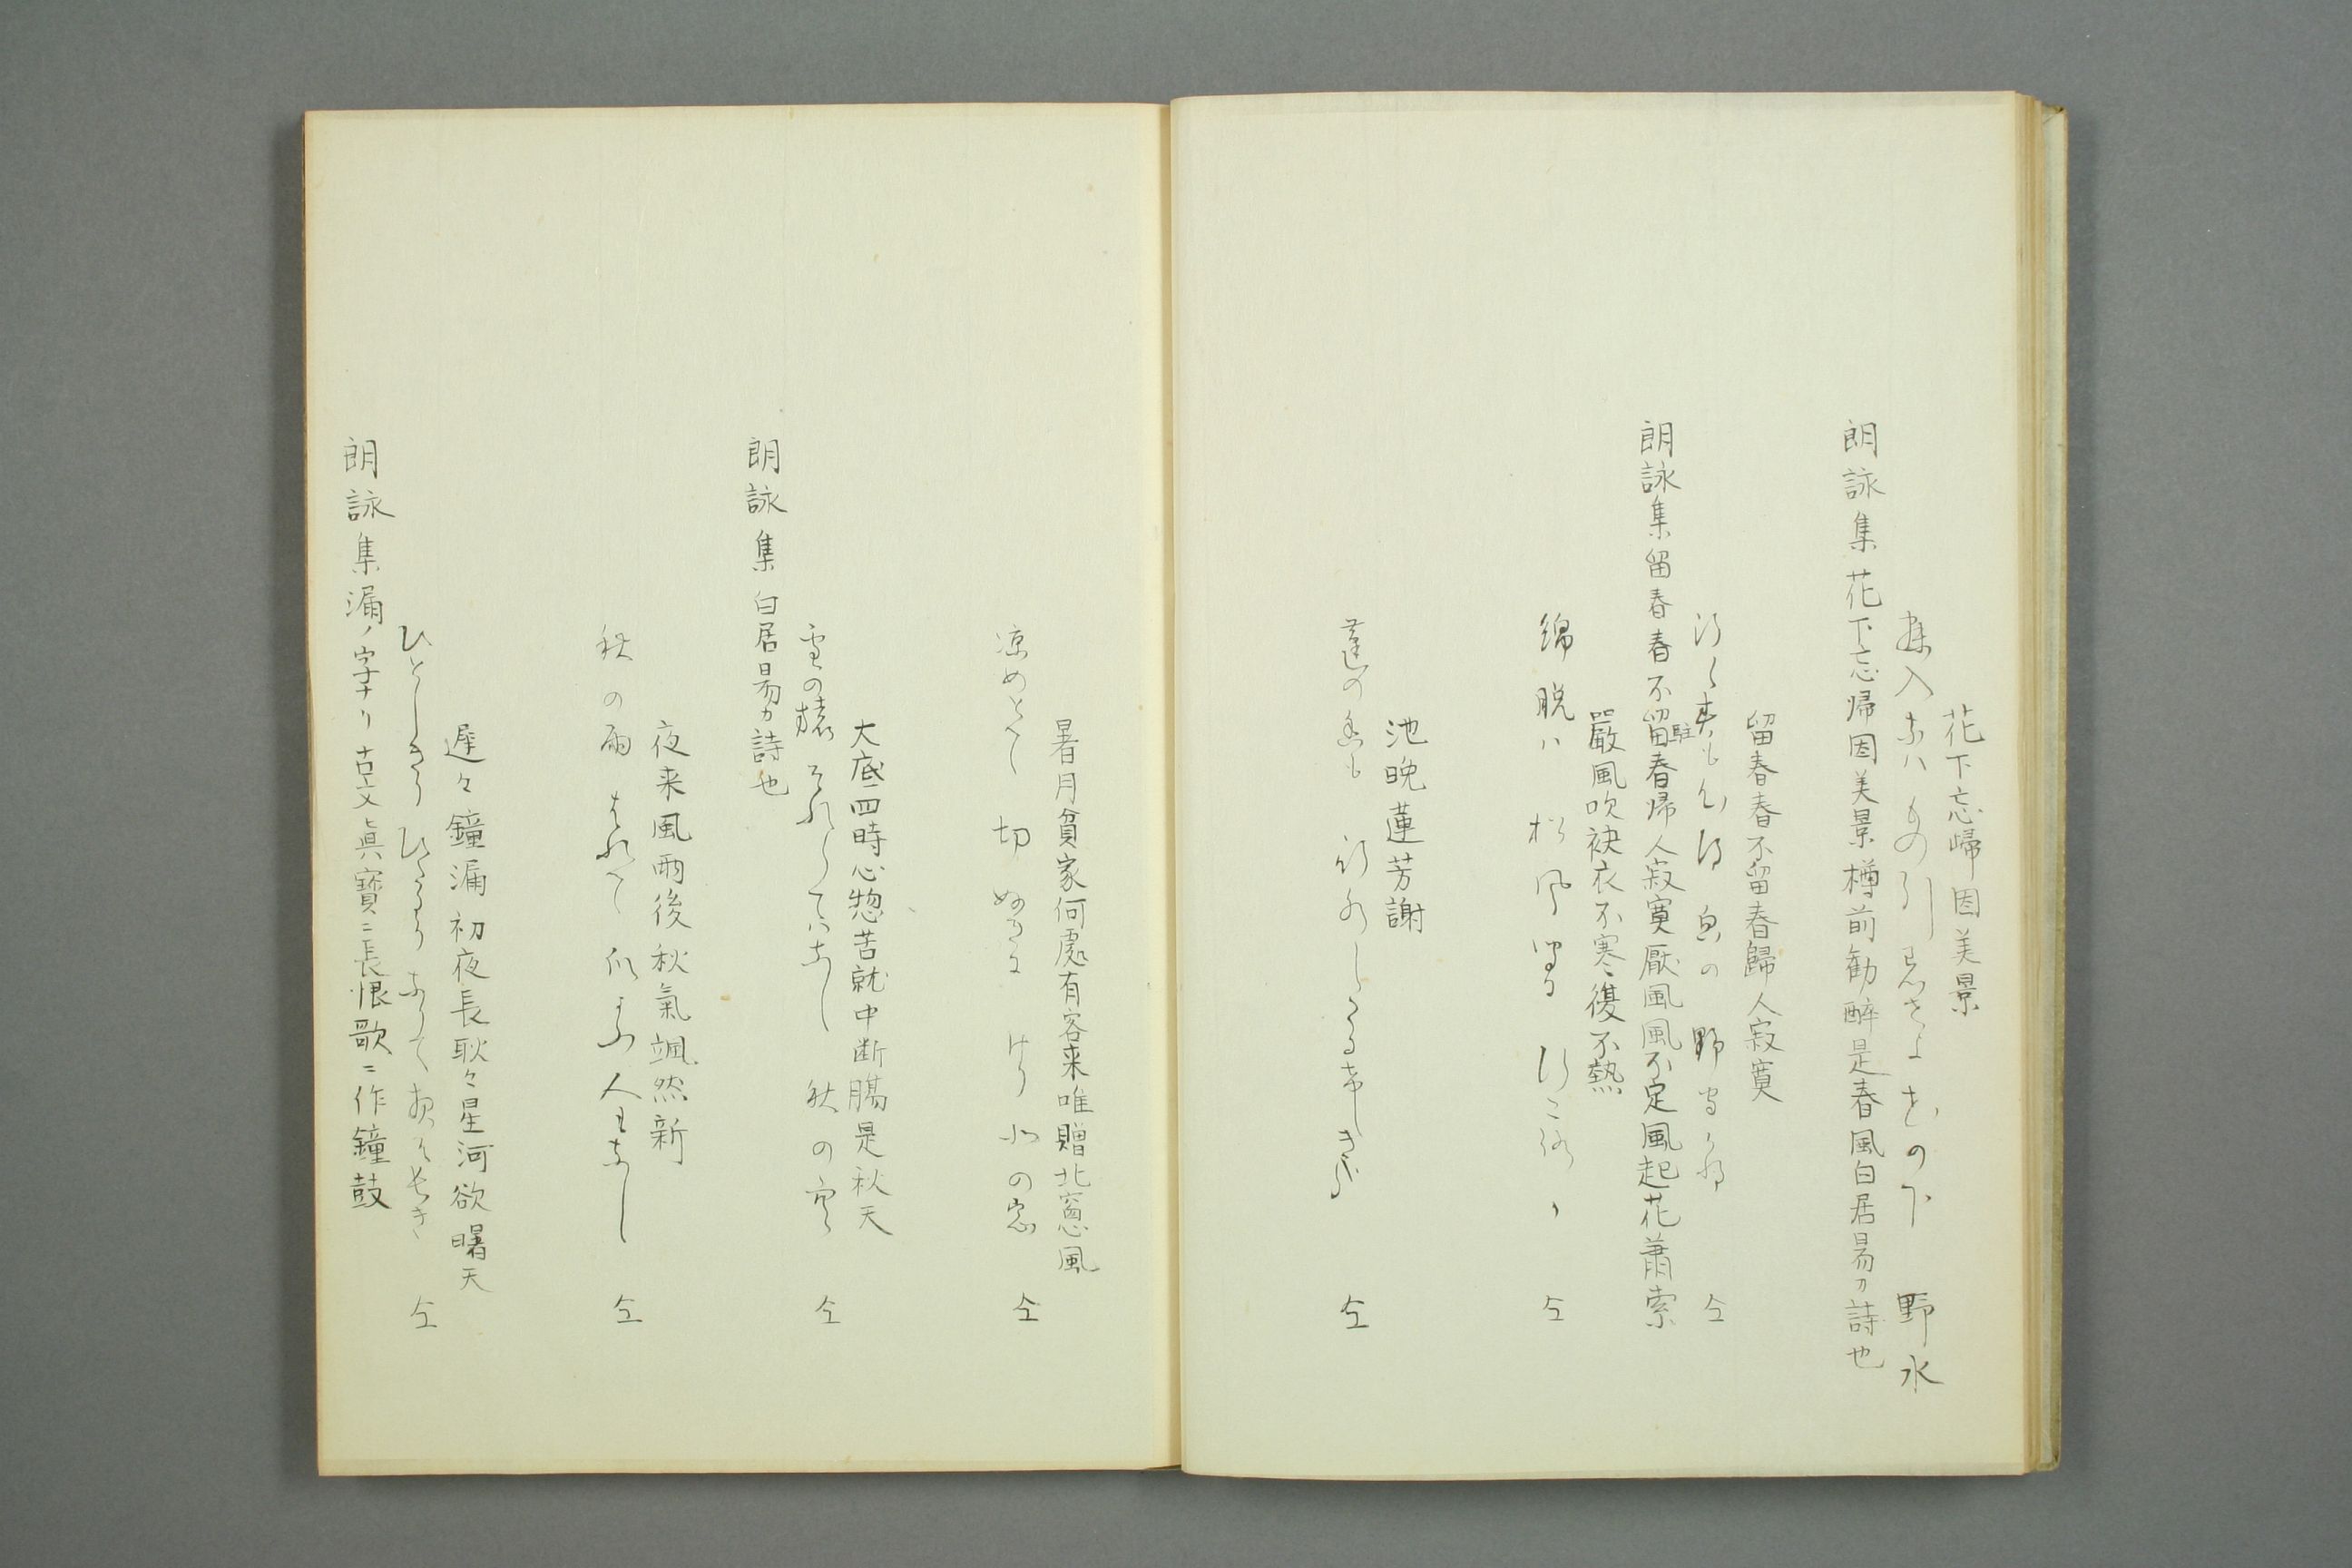 花下忘歸因美景
寐入なは もの引きせよ 花の下 野水
朗詠集 花下忘帰因美景樽前勧醉是春風白居易カ詩也
留春春不留春歸人寂寞
野水
朗詠集留春春不留駐春帰人寂寞厭風風不定風起花蕭索
嚴風吹袂衣不寒復不熱
綿脱ハ 松風聞に 行ころか 仝
池晩蓮芳謝
蓮の香も 行水したる 気色哉 仝
暑月貧家何處有 容来唯贈北窓風
凉めとて 切ぬきにけり 北の窓 仝
大底四時心惣苦就中断膓是秋天
雪の旅 それらてはなし 秋の空 仝
朗詠集 白居易カ詩也
夜来風雨後秋氣颯然新
秋の雨 はれて 瓜よふ 人もなし 仝
遅々鐘漏初夜長耿々星河欲曙天
ひとしきり ひたるう なりて 夜そ長き 仝
朗詠集漏ノ字ナリ 古文眞寶ニ長恨歌ニ作鐘鼓